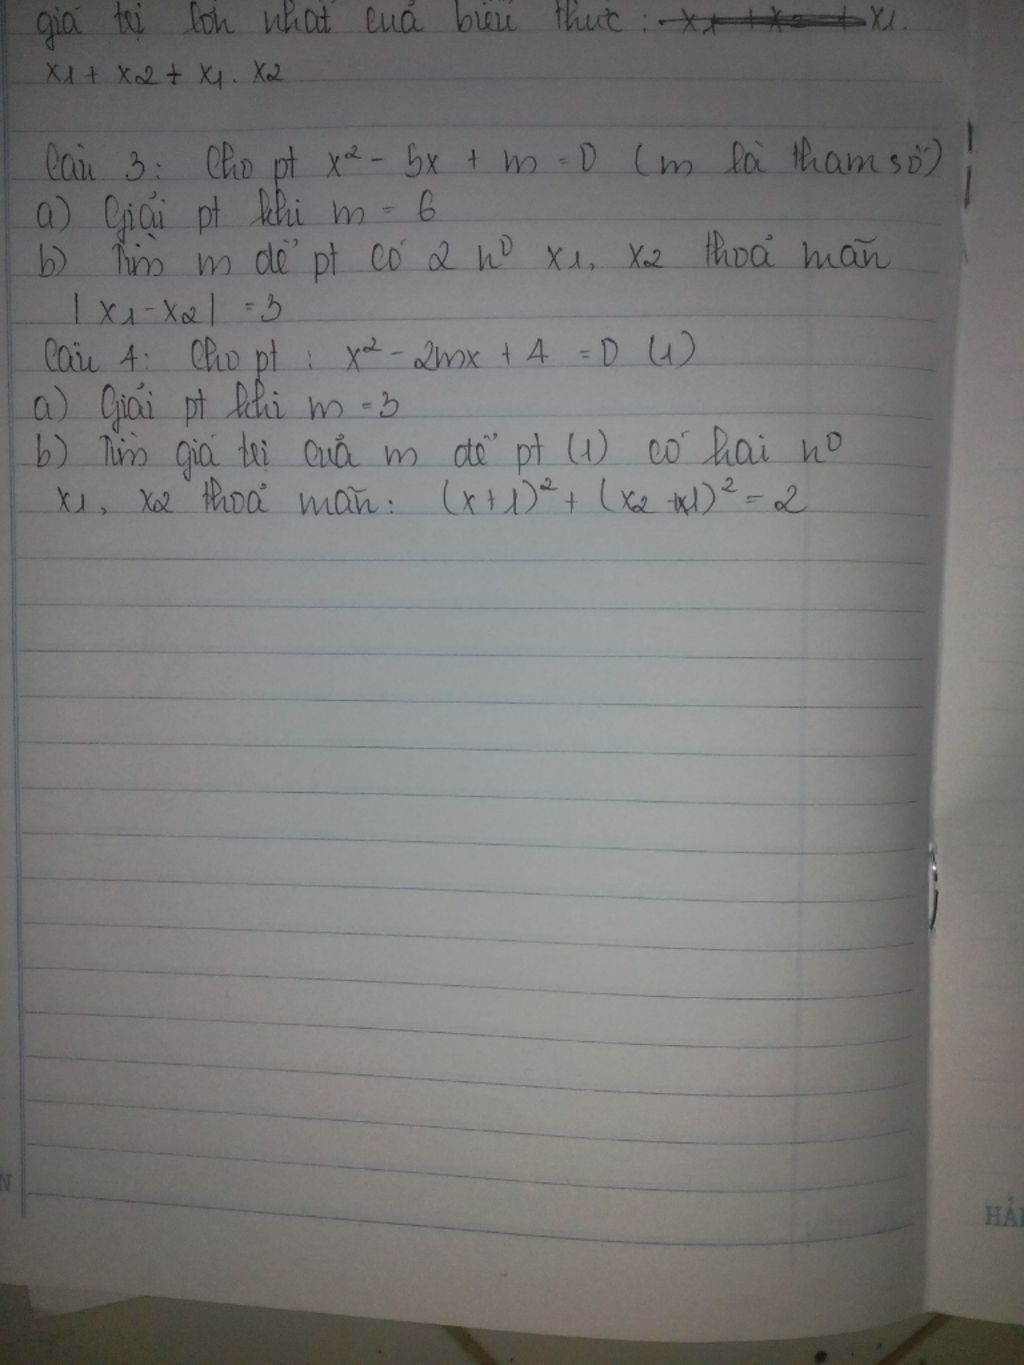 giá trị lớn nhất của biểu thức : x1.
x1 + x2 + x1. x2
Câu 3: Cho pt x² - 5x + m = 0 (m là tham số)
a) Giải pt khi m = 6
b) Tìm m để pt có 2 n⁰ x1, x2 thoả mãn
|x1-x2| = 3
Câu 4: Cho pt : x² - 2mx + 4 = 0 (1)
a) Giải pt khi m = 3
b) Tìm giá trị của m để pt (1) có hai n⁰
x1, x2 thoả mãn: (x+1)² + (x2 +1)² = 2
N
HẢI